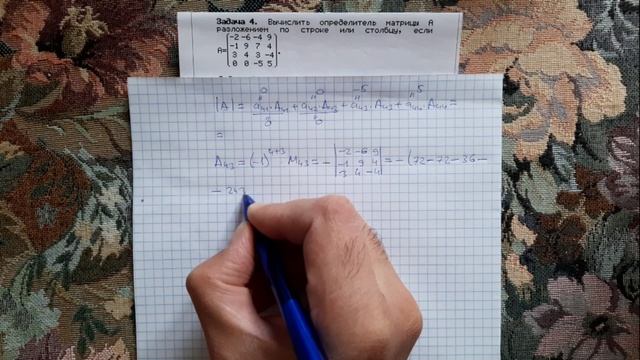 Задача 4. Вычислить определитель матрицы A
разложением по строке или столбцу, если
A= (-2 -6 -4 9
-1 9 7 4
3 4 3 -4
0 0 -5 5).
0 0 -5 5
|A| = a₄₁·A₄₁ + a₄₂·A₄₂ + a₄₃·A₄₃ + a₄₄·A₄₄ =
0 0
=
A₄₃ = (-1)⁴⁺³ M₄₃ = - |-2 -6 9
-1 9 4
3 4 -4| = - (72 - 72 - 36 -
- 243